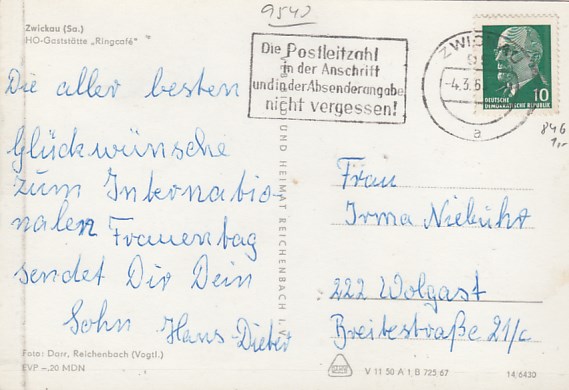 9540
Zwickau (Sa.)
HO-Gaststätte „Ringcafé"
Die Postleitzahl
in der Anschrift
und in der Absenderangabe
nicht vergessen!
ZWICKAU
-4.3.6
a
DEUTSCHE
DEMOKRATISCHE REPUBLIK
10
846
1,-
Die aller besten
Glückwünsche
zum Internatio-
nalen Frauentag
sendet Dir Dein
Sohn Hans-Dieter
UND HEIMAT REICHENBACH I. V.
Frau
Irma Niekühr
222 Wolgast
Breitestraße 21/c
Foto: Darr, Reichenbach (Vogtl.)
EVP -,20 MDN
V 11 50 A 1 B 725/67
14/6430